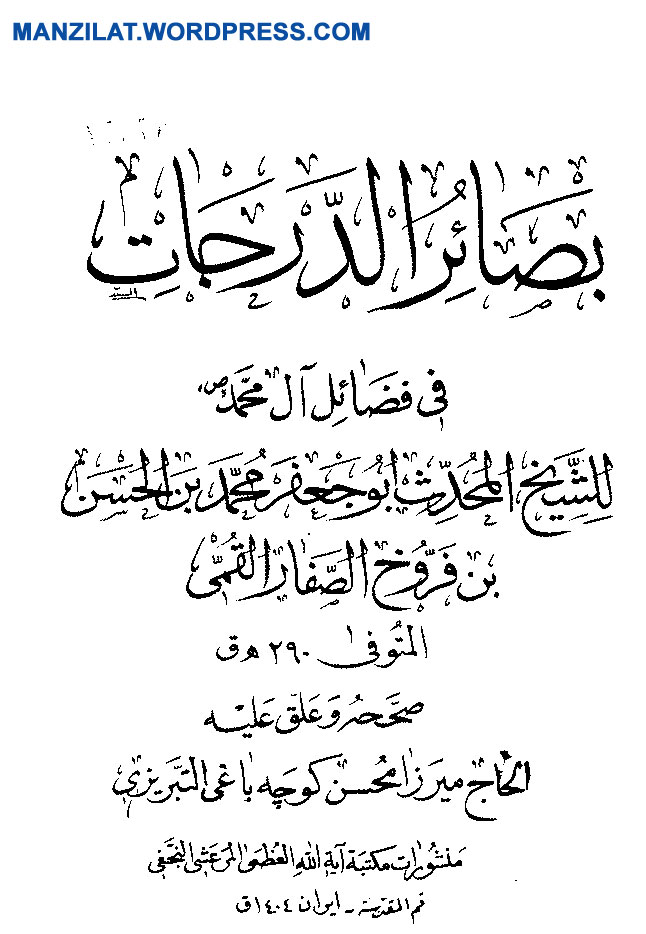 MANZILAT.WORDPRESS.COM
بَصَائِرُ الدَّرَجَاتِ
فى فضَائِل آل محمّد ص
لِلشَّيخ المُحَدِّث ابُو جَعفَر مُحَمَّد بن الحسن
بن فَرُّوخ الصّفار القُمّى
المتُوفى ٢٩٠ ھ ق
صحّحه وَعلّق عَليه
الحاج ميرزا محسن كوچه باغى التبريزي
منشورات مكتبة آية الله العُظمى المرعشى النجفي
قم المقدسة - ايران ١٤٠٤ ق